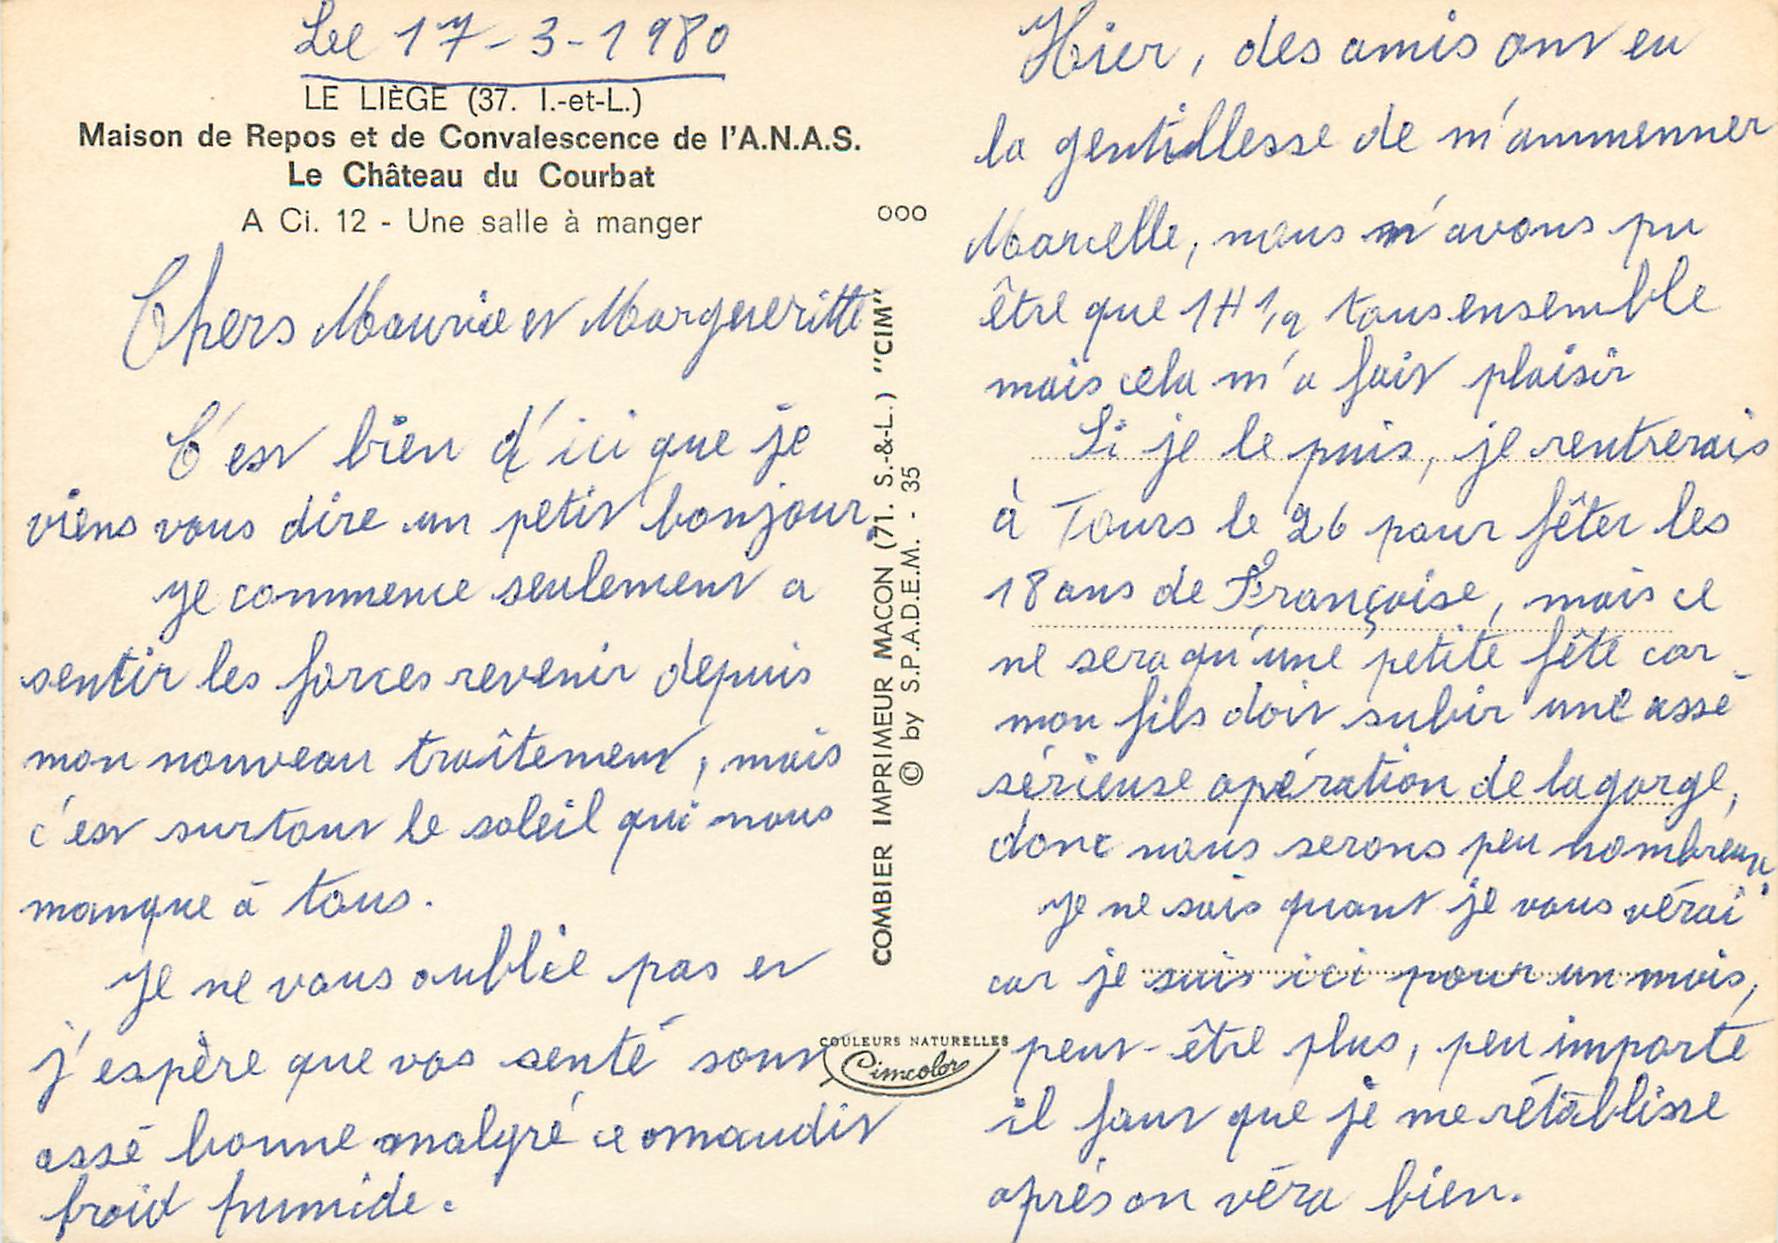 Le 17-3-1980
LE LIÈGE (37. I.-et-L.)
Maison de Repos et de Convalescence de l'A.N.A.S.
Le Château du Courbat
A Ci. 12 - Une salle à manger
Chers Maurice et Margueritte
C'est bien d'ici que je
viens vous dire un petit bonjour.
Je commence seulement a
sentir les forces revenir depuis
mon nouveau traîtement, mais
c'est surtout le soleil qui nous
manque à tous.
Je ne vous oublie pas et
j'espère que vos senté sont
assé bonne malgré ce maudit
froid humide.
COMBIER IMPRIMEUR MACON (71. S.-&-L.) "CIM"
© by S.P.A.D.E.M. - 35
ooo
COULEURS NATURELLES
Cimcolor
Hier, des amis ont eu
la gentillesse de m'ammenner
Marcelle, nous n'avons pu
être que 1H 1/2 tous ensemble
mais cela m'a fait plaisir
Si je le puis, je rentrerais
à Tours le 26 pour fêter les
18 ans de Françoise, mais ce
ne sera qu'une petite fête car
mon fils doit subir une assé
sérieuse opération de la gorge,
donc nous serons peu nombreux.
Je ne sais quant je vous vérai
car je suis ici pour un mois,
peut-être plus, peu importe
il faut que je me rétablisse
après on véra bien.